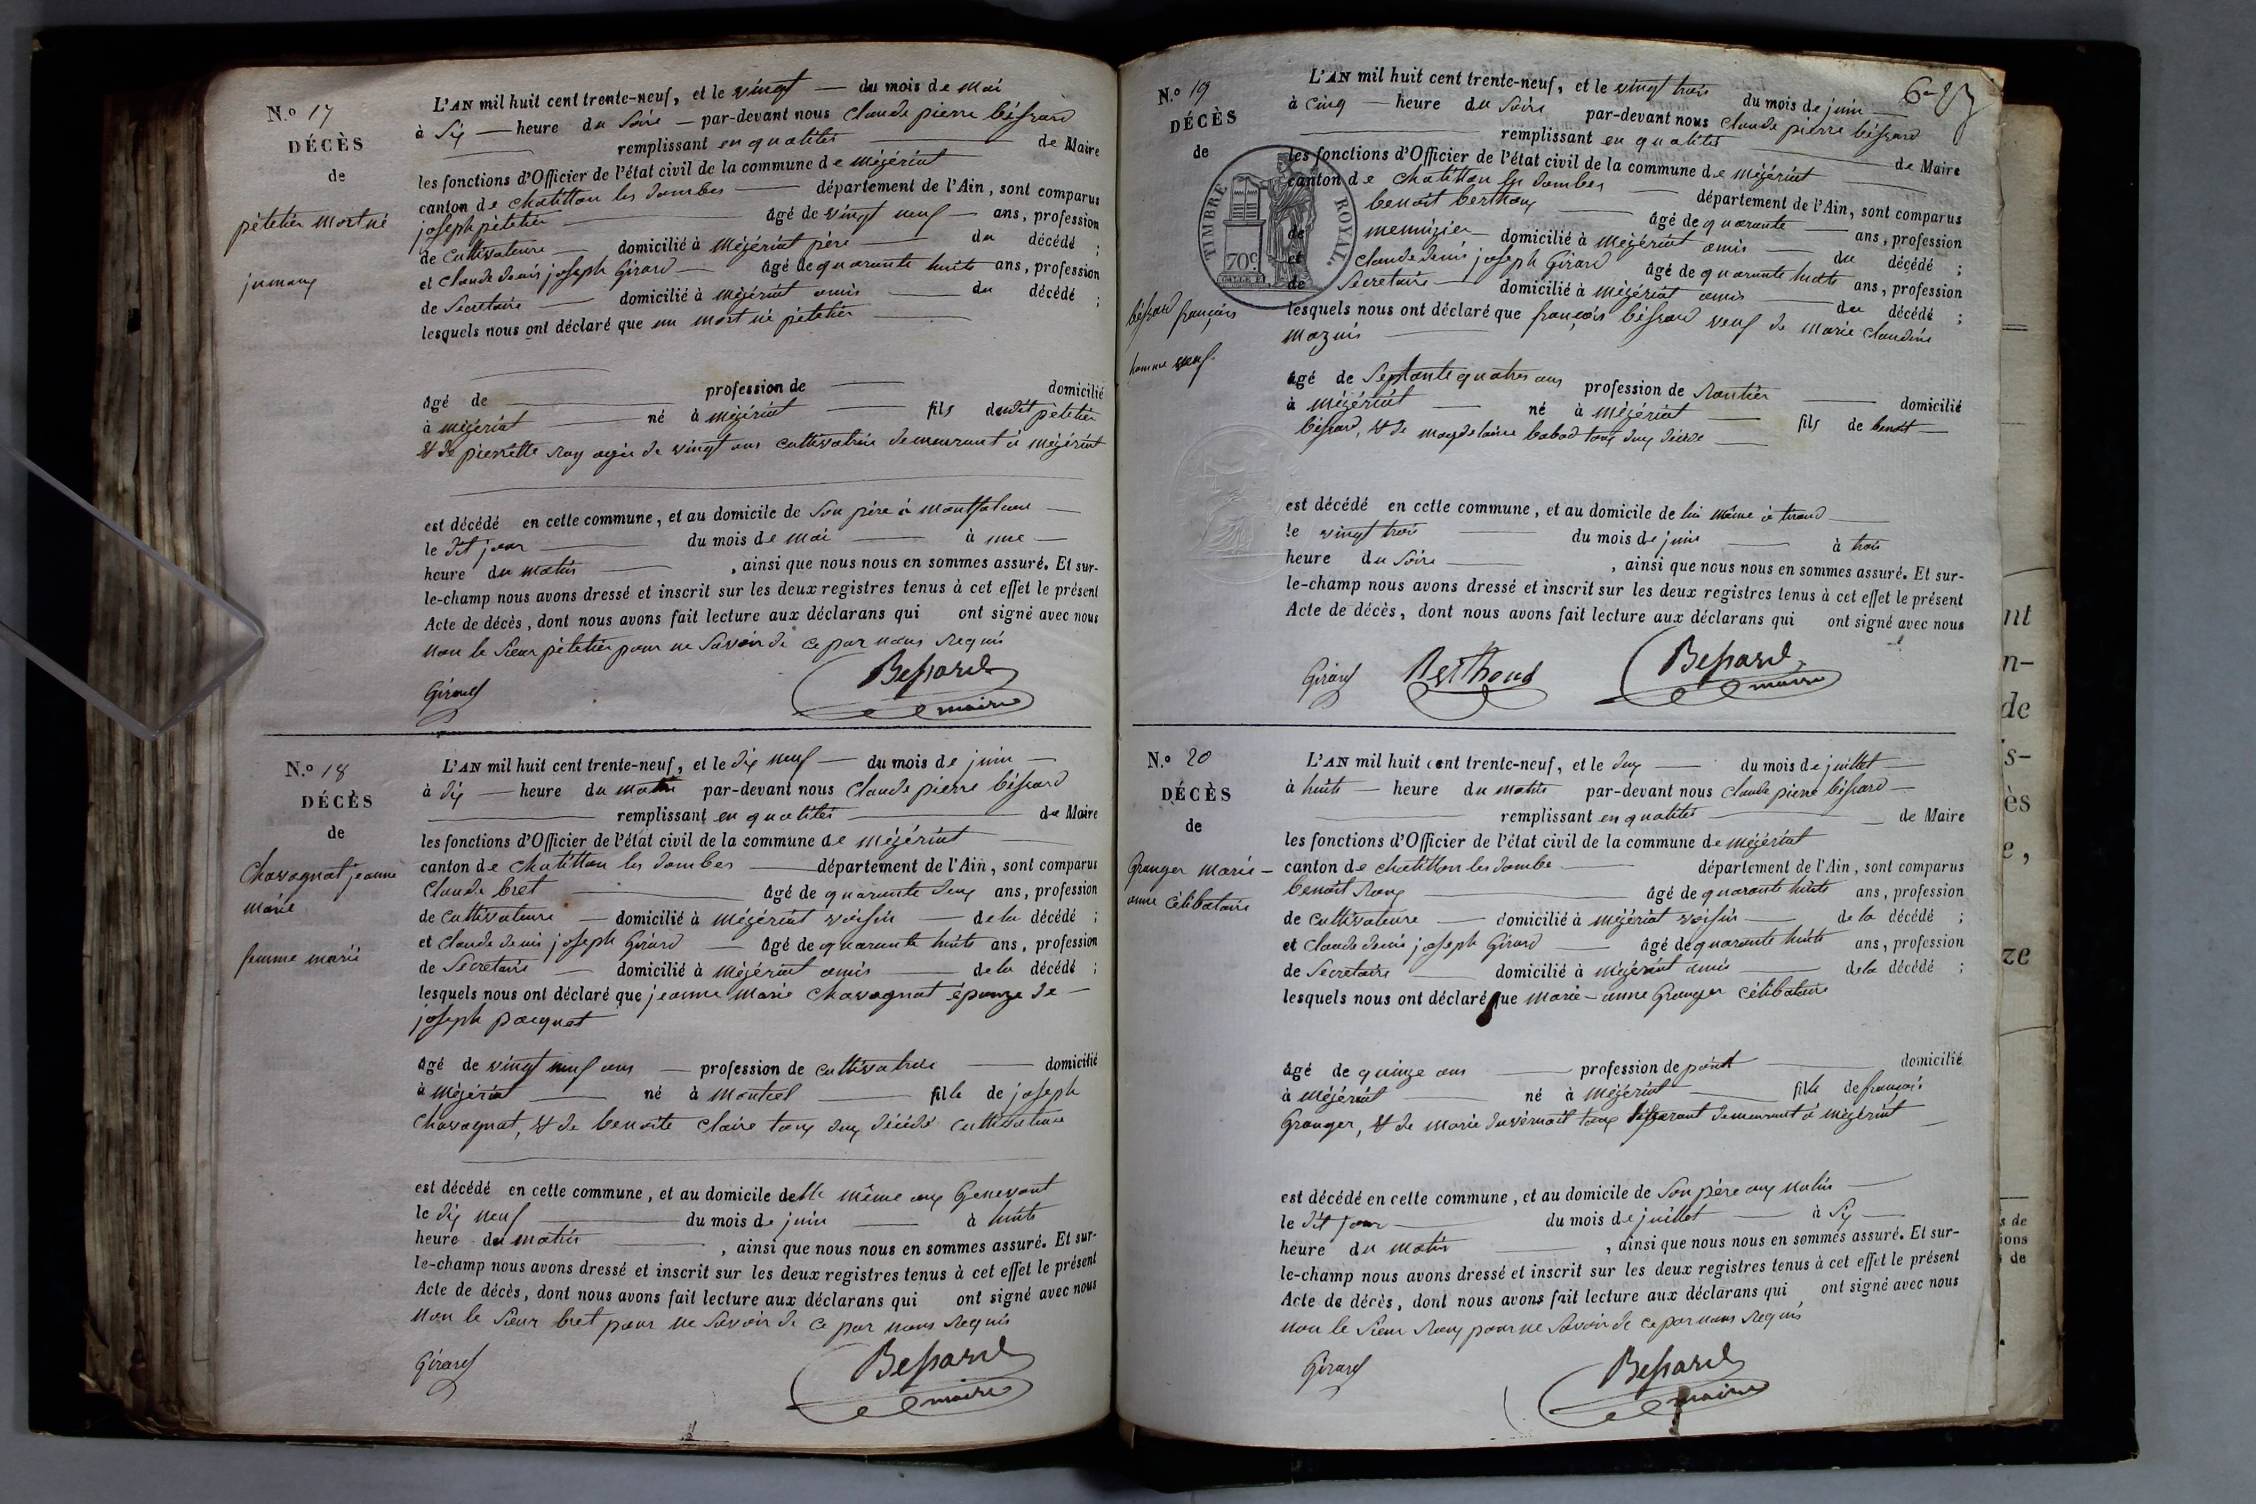 N.o 17
DÉCÈS
de
pétetier mort né
jumaux
L'AN mil huit cent trente-neuf, et le vingt — du mois de mai
à Six — heure du Soire — par-devant nous Claude pierre béssard
remplissant en qualités — de Maire
les fonctions d'Officier de l'état civil de la commune de mézériat
canton de chatillon les dombes — département de l'Ain, sont comparus
joseph pétetier — âgé de vingt neuf — ans, profession
de cultivateure — domicilié à Mézériat père — du décédé ;
et Claude denis joseph Girard — âgé de quarante huite ans, profession
de Secretaire — domicilié à mézériat amis — du décédé ;
lesquels nous ont déclaré que un mort né pétetier —
âgé de — profession de — domicilié
à mézériat — né à mézériat — fils dudit pétetier
& de pierrette ray agée de vingt ans cultivatrice demeurant à mézériat
est décédé en cette commune, et au domicile de Son père à
le dit jour — du mois de mai — à une —
heure du matin — , ainsi que nous nous en sommes assuré. Et sur-
le-champ nous avons dressé et inscrit sur les deux registres tenus à cet effet le présent
Acte de décès, dont nous avons fait lecture aux déclarans qui ont signé avec nous
non le Sieur pétetier pour ne Savoir de ce par nous requis
Girard Bessard
maire
N.o 18
DÉCÈS
de
Chavagnat jeanne
marie
femme marié
L'AN mil huit cent trente-neuf, et le dix neuf — du mois de juin —
à dix — heure du matin par-devant nous Claude pierre béssard
remplissant en qualités — de Maire
les fonctions d'Officier de l'état civil de la commune de mézériat
canton de chatillon les dombes — département de l'Ain, sont comparus
Claude bret — âgé de quarante deux ans, profession
de Cultivateure — domicilié à mézériat voisin — de la décédé ;
et Claude denis joseph Girard — âgé de quarante huite ans, profession
de Secretaire — domicilié à mézériat amis — de la décédé ;
lesquels nous ont déclaré que jeanne marie chavagnat épouze de —
joseph pacquet
âgé de vingt neuf ans — profession de cultivatrice — domicilié
à mézériat — né à montcel — fille de joseph
Chavagnat, & de benoite Claire tous deux décédé cultivateure
est décédé en cette commune, et au domicile delle même aux Genevant
le dix neuf — du mois de juin — à huite
heure du matin — , ainsi que nous nous en sommes assuré. Et sur-
le-champ nous avons dressé et inscrit sur les deux registres tenus à cet effet le présent
Acte de décès, dont nous avons fait lecture aux déclarans qui ont signé avec nous
non le Sieur bret pour ne Savoir de ce par nous requis
Girard Bessard
maire
N.o 19
DÉCÈS
de
béssard françois
homme veuf
TIMBRE ROYAL.
70c
L'AN mil huit cent trente-neuf, et le vingt trois du mois de juin
à cinq — heure du Soire par-devant nous Claude pierre béssard
remplissant en qualités — de Maire
les fonctions d'Officier de l'état civil de la commune de mézériat
canton de chatillon les dombes — département de l'Ain, sont comparus
benoit berthoux — âgé de quarante — ans, profession
de mennizier — domicilié à Mézériat amis — du décédé ;
et claude denis joseph Girard âgé de quarante huite ans, profession
de Secretaire — domicilié à mézériat amis — du décédé ;
lesquels nous ont déclaré que françois béssard veuf de marie Claudine
mazuis —
âgé de Septante quatres ans profession de Rantier — domicilié
à mézériat — né à mézériat — fils de benoit —
béssard, & de magdelaine babad tous deux décédé —
est décédé en cette commune, et au domicile de lui même à
le vingt trois — du mois de juin — à trois
heure du Soire — , ainsi que nous nous en sommes assuré. Et sur-
le-champ nous avons dressé et inscrit sur les deux registres tenus à cet effet le présent
Acte de décès, dont nous avons fait lecture aux déclarans qui ont signé avec nous
Girard Berthoud Bessard
maire
N.o 20
DÉCÈS
de
Granger marie-
anne célibataire
L'AN mil huit cent trente-neuf, et le deux — du mois de juillet —
à huite — heure du matin par-devant nous Claude pierre béssard —
remplissant en qualités — de Maire
les fonctions d'Officier de l'état civil de la commune de mézériat
canton de chatillon les dombe — département de l'Ain, sont comparus
benoit Roux — âgé de quarante huite ans, profession
de cultivateure — domicilié à mézériat voisin — de la décédé ;
et Claude denis joseph Girard — âgé de quarante huite ans, profession
de Secretaire — domicilié à mézériat amis — de la décédé ;
lesquels nous ont déclaré que marie-anne Granger célibataire
âgé de quinze ans — profession de point — domicilié
à mézériat — né à mézériat — fille de françois
Granger, & de marie duvernait tous demeurant à mézériat —
est décédé en cette commune, et au domicile de Son père aux
le dit jour — du mois de juillet — à Six —
heure du matin — , ainsi que nous nous en sommes assuré. Et sur-
le-champ nous avons dressé et inscrit sur les deux registres tenus à cet effet le présent
Acte de décès, dont nous avons fait lecture aux déclarans qui ont signé avec nous
non le Sieur Roux pour ne Savoir de ce par nous requis
Girard Bessard
maire